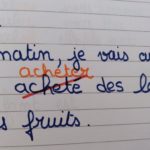 matin, je vais au
acheter
achete des lé
s fruits.